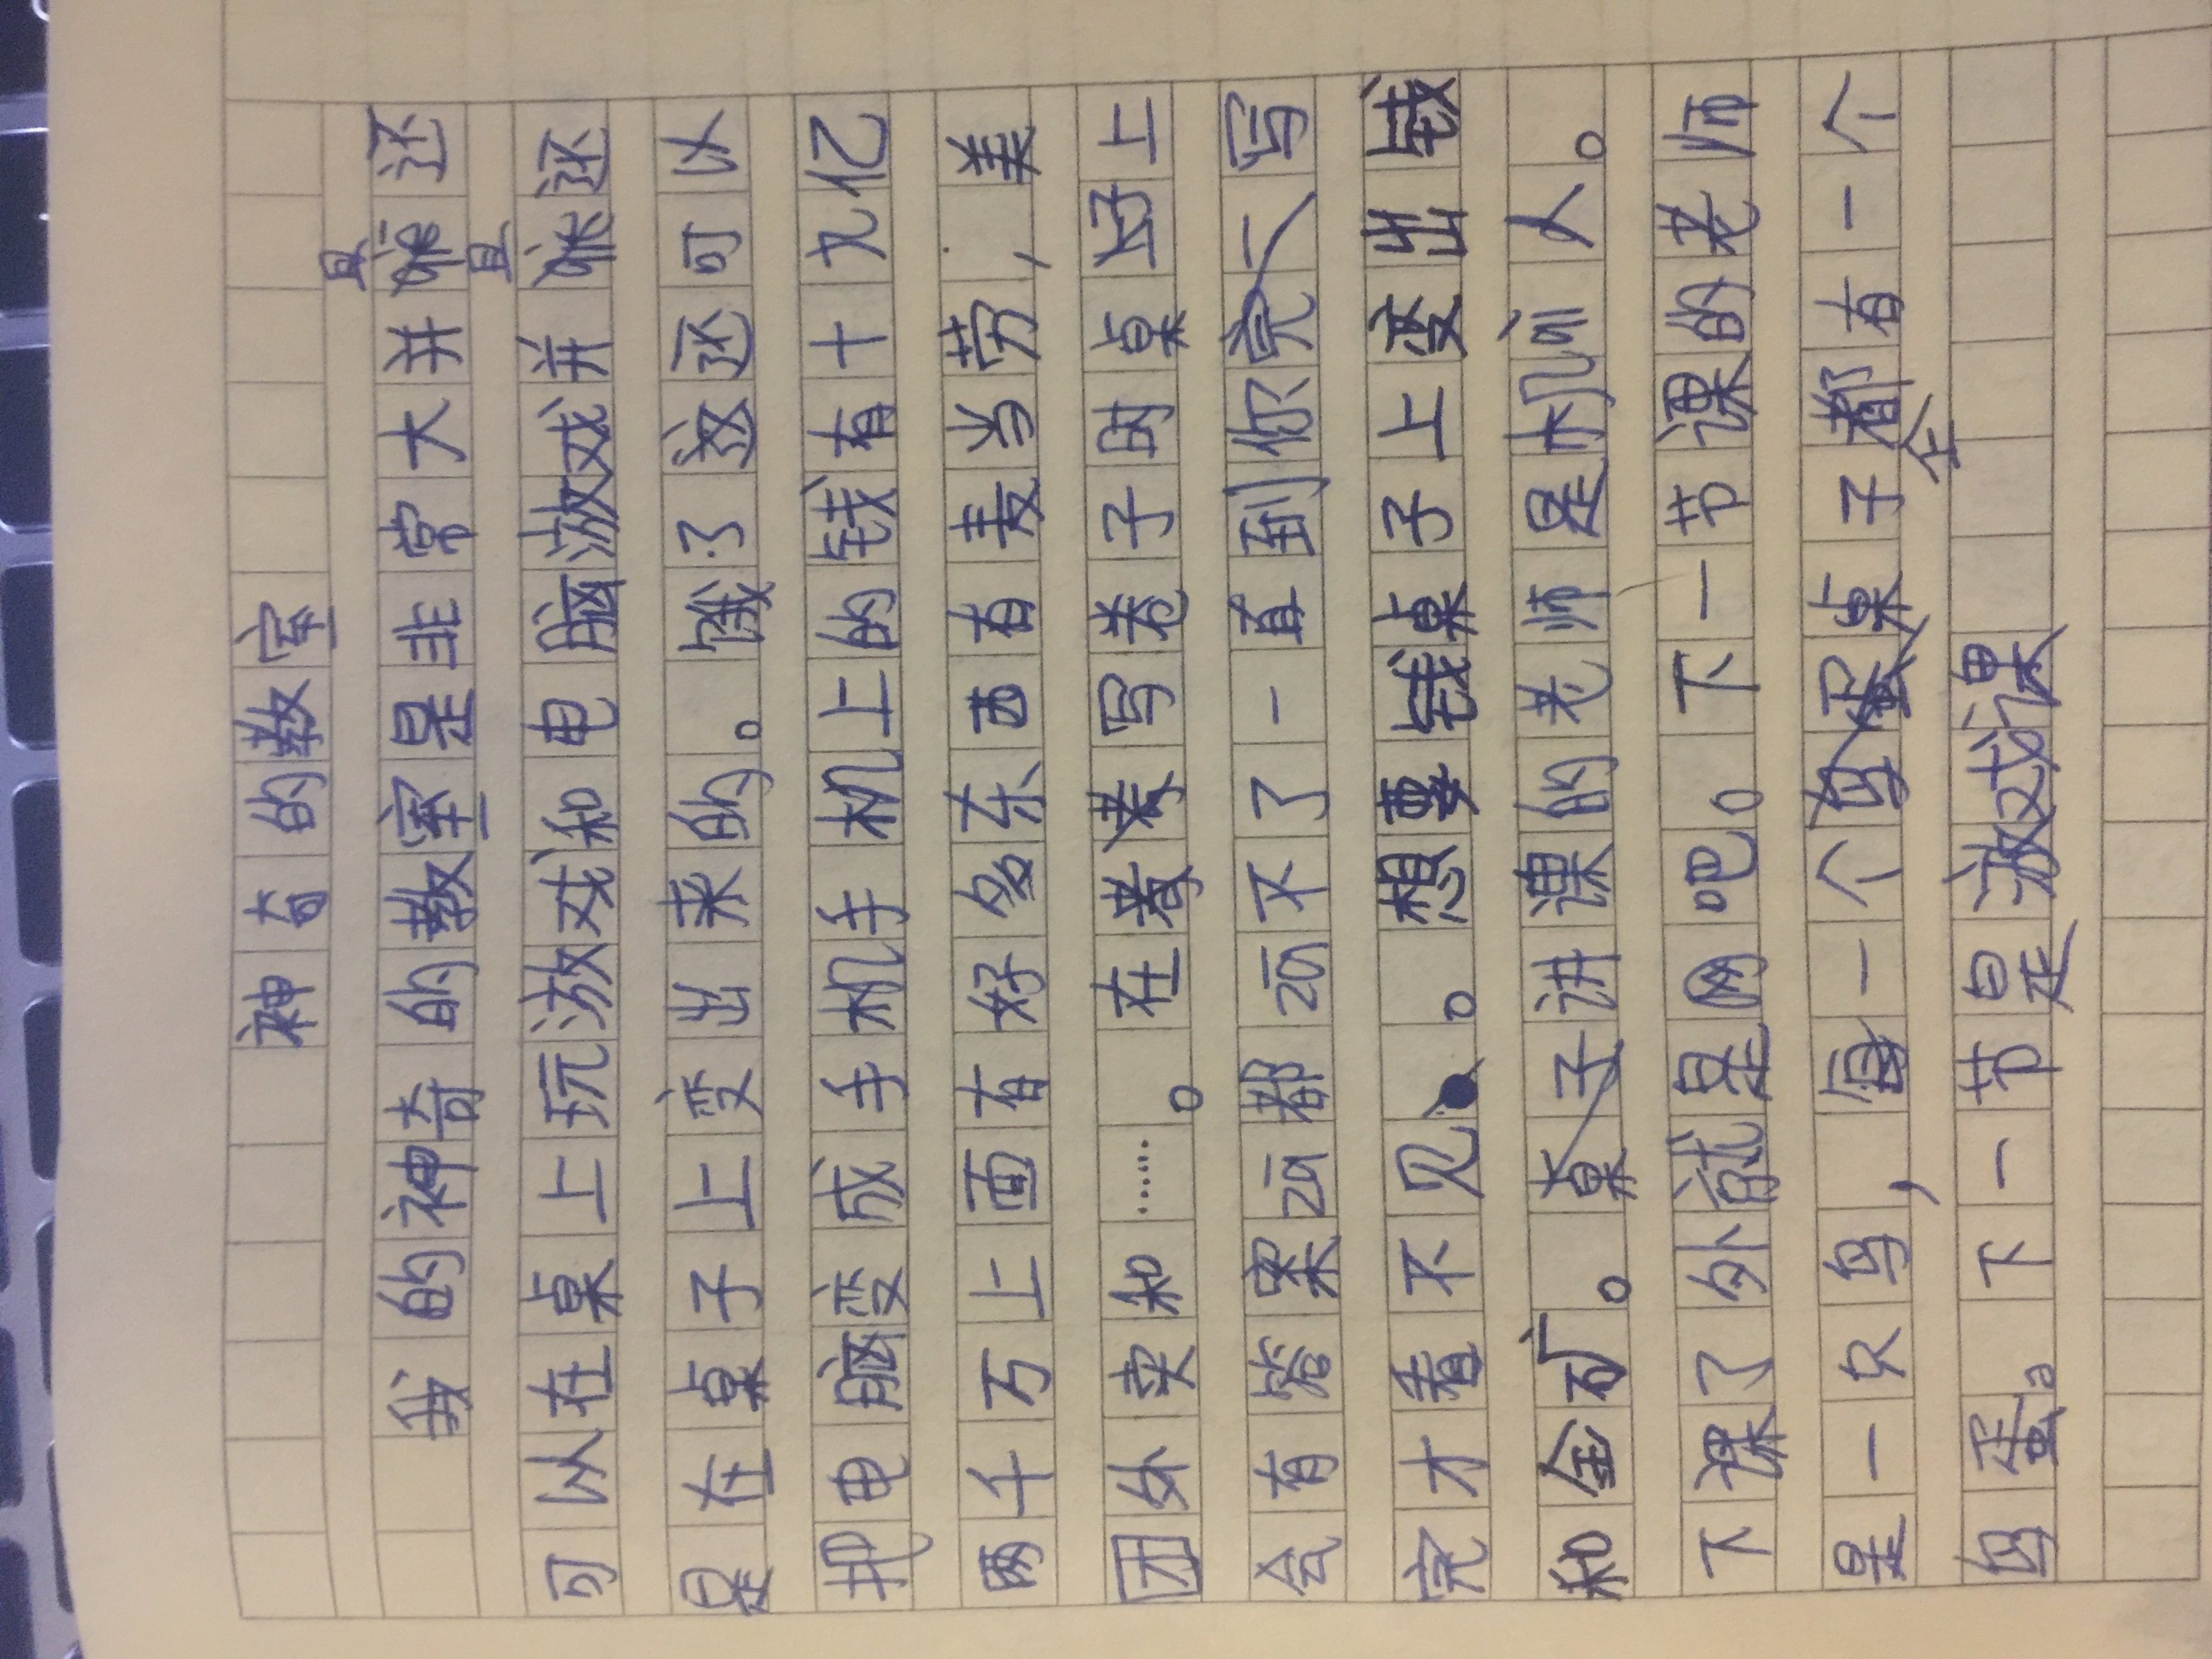 神奇的教室
我的神奇的教室是非常大并且还
可以在桌上玩游戏和电脑游戏并且还
是在桌子上变出来的。饿了这还可以
把电脑变成手机手机上的钱有十九亿
两千万上面有好多东西有麦当劳,美
团外卖和……。在写卷子时桌好上
会有答案动都动不了一直到你写
完才看不见。想要钱桌子上变出钱
和金矿。讲课的老师是机人。
下课了外就是网吧。下一节课的老师
是一只鸟,每一个桌子都有一个
鸟蛋。下一节是游戏课